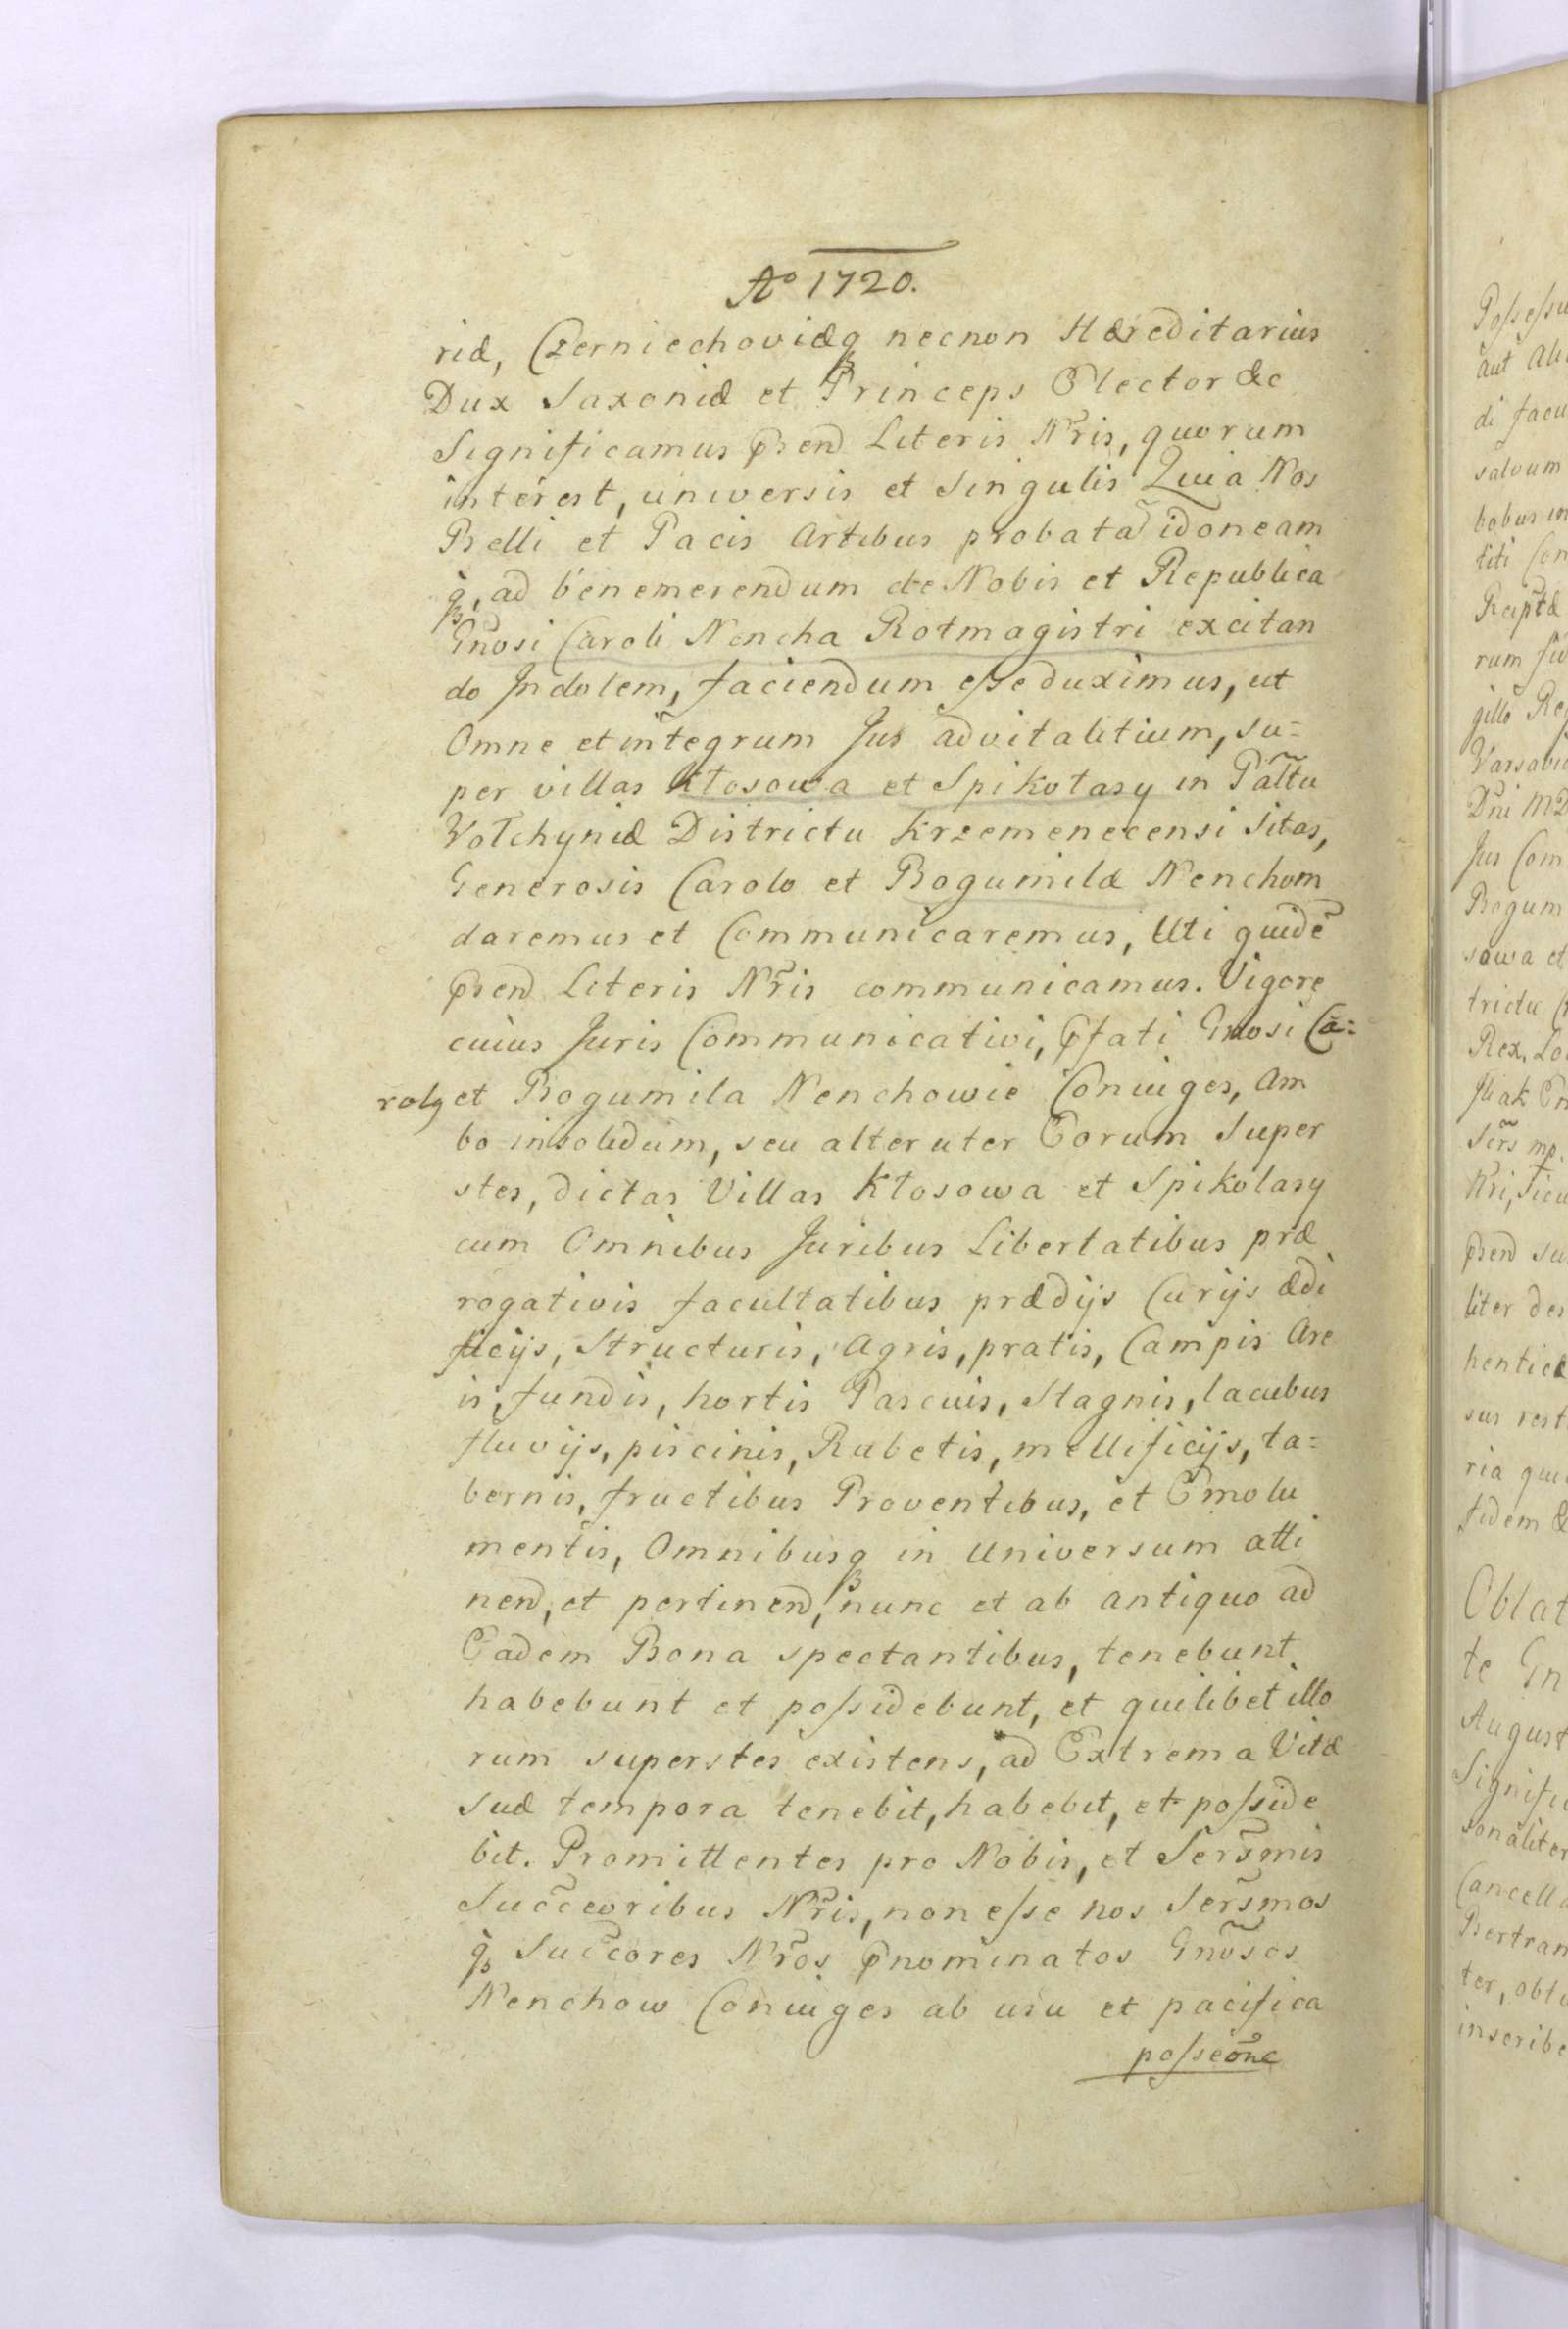 Aº 1720.
riæ, Czerniechoviæq; necnon Hæreditarius
Dux Saxoniæ et Princeps Elector &c
Significamus p̄send Literis Nr̃is, quorum
interest, universis et Singulis Quia Nos
Belli et Pacis Artibus probatã idoneam
q;, ad benemerendum de Nobis et Republica
Gñosi Caroli Nencha Rotmagistri excitan
do Indolem, faciendum eſse duximus, ut
Omne et integrum Jus advitalitium, su=
per villas Kłosowa et Spikołasy in Pal̃tu
Vołchyniæ Districtu Krzemenecensi Sitas,
Generosis Carolo et Bogumilæ Nenchom
daremus et Communicaremus, Uti quidẽ
p̄send Literis Nr̃is communicamus. Vigore
cuius Juris Communicativi, p̄fati Gnosi Ca=
rolg et Bogumila Nenchowie Coniuges, Am
bo insolidum, seu alteruter Eorum Super
stes, dictas Villas Kłosowa et Spikołasy
cum Omnibus Juribus Libertatibus præ
rogativis facultatibus prædijs Curijs ædi
ficijs, Structuris, Agris, pratis, Campis Are
is, fundis, hortis Pascuis, Stagnis, lacubus
fluvijs, piscinis, Rubetis, mellificijs, ta=
bernis, fructibus Proventibus, et Emolu
mentis, Omnibusq; in Universum atti
nend, et pertinend, nunc et ab antiquo ad
Eadem Bona spectantibus, tenebunt
habebunt et poſsidebunt, et quilibet illo
rum superstes existens, ad Extrema Vitæ
suæ tempora tenebit, habebit, et poſside
bit. Promittentes pro Nobis, et Ser̃smis
Succ̃eoribus Nr̃is, non eſse nos Ser̃smos
q; Succ̃ores Nr̃os p̄nominatos Gnõsos
Nenchow Coniuges ab usu et pacifica
poſseõne
Poſseſsu
aut Ali
di facu
salvum
bobus in
titi Con
Rciptæ
rum fid
gillo Re
Varsavi
Dni MD
Jus Com
Bogum
sowa et
trictu
Rex. Lo
Sers mp.
Kri, Sicu
p̄send su
liter des
hentic
sus rest
ria qui
fidem &
Oblat
te Gn
August
Signific
sonaliter
Cancella
Bertran
ter, obl
inscribe